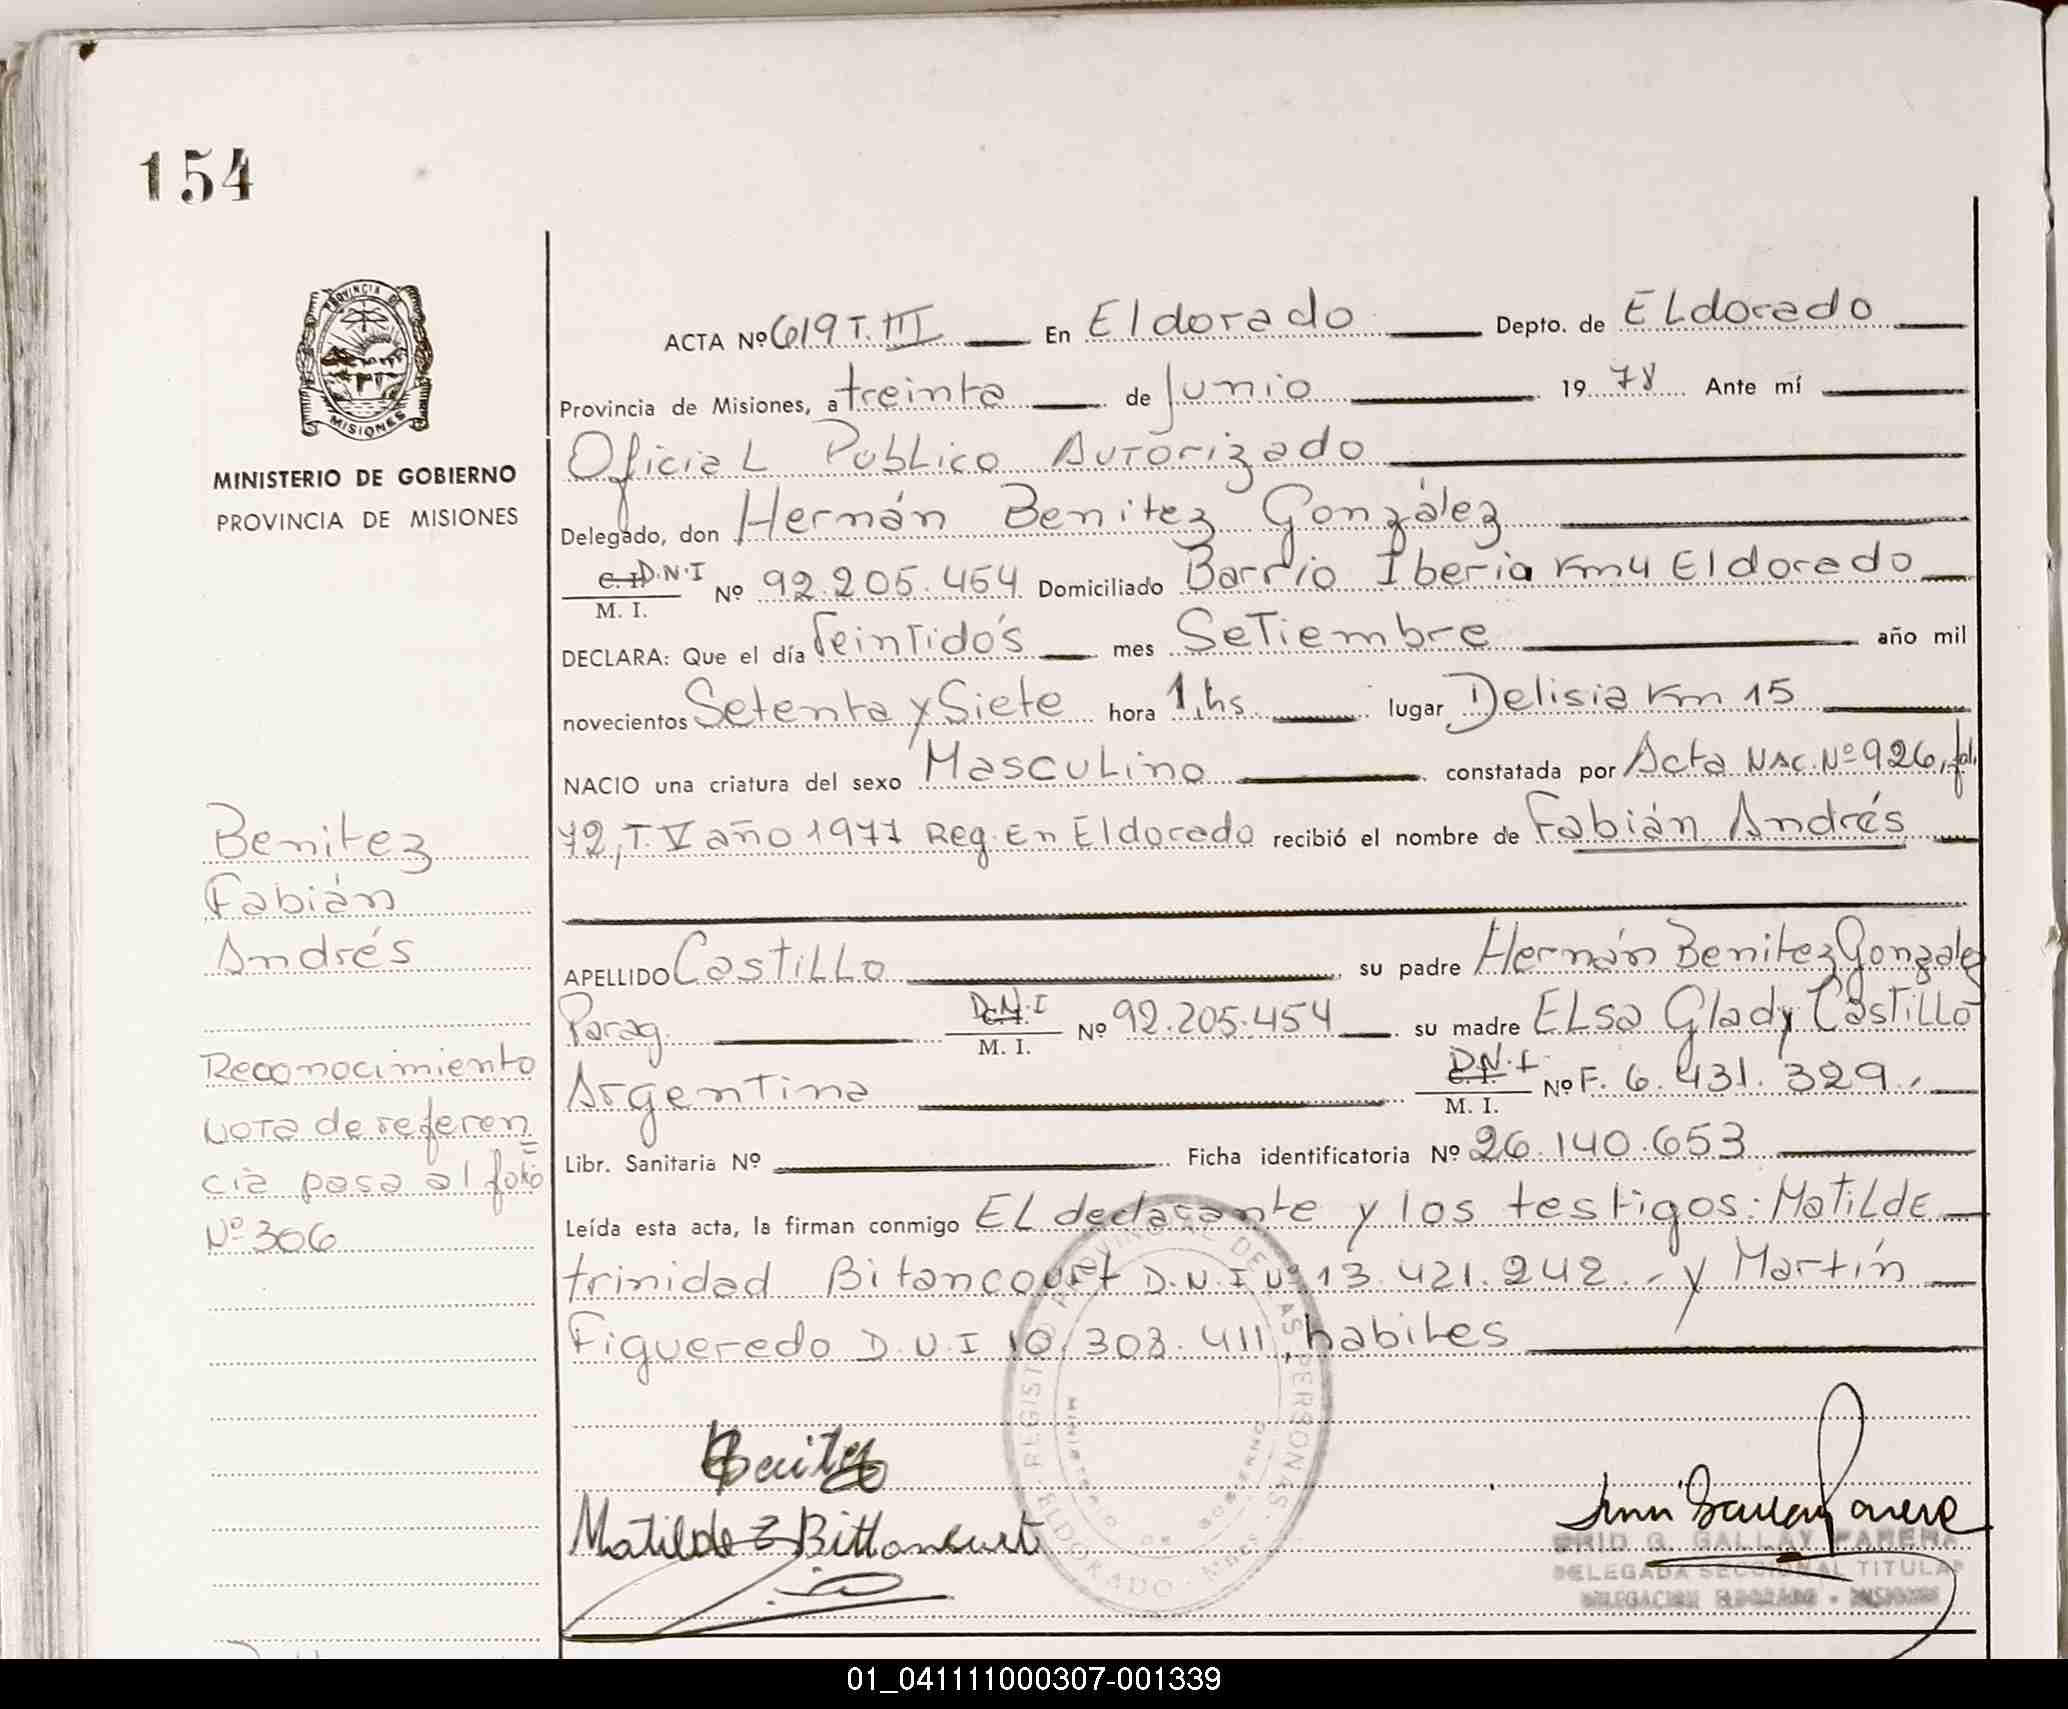 154
PROVINCIA DE
MISIONES
MINISTERIO DE GOBIERNO
PROVINCIA DE MISIONES
ACTA Nº 619 T. III En Eldorado Depto. de ELdorado
Provincia de Misiones, a treinta de Junio 19 78 Ante mí
Oficial Publico Autorizado
Delegado, don Hernán Benitez González
C. I. D.N.I
M. I. Nº 92.205.454 Domiciliado Barrio Iberia Km 4 Eldorado
DECLARA: Que el día Veintidós mes Setiembre año mil
novecientos Setenta y Siete hora 1,hs lugar Delisia Km 15
NACIO una criatura del sexo Masculino constatada por Acta NAC. Nº 926, fol.
72, T. V año 1977 Reg. En Eldorado recibió el nombre de Fabián Andrés
APELLIDO Castillo su padre Hernán Benitez Gonzalez
Parag. D.N.I C.I. M. I. Nº 92.205.454 su madre Elsa Glady Castillo
Argentina D.N.I C.I. M. I. Nº F. 6.431.329.
Libr. Sanitaria Nº Ficha identificatoria Nº 26.140.653
Leída esta acta, la firman conmigo El declarante y los testigos: Matilde
trinidad Bitancourt D.N.I Nº 13.421.242.- y Martín
Figueredo D.N.I 10.303.411, habiles
Benitez
Fabián
Andrés
Reconocimiento
nota de referen
cia pasa al folio
Nº 306
Benitez
Matilde Bittancourt
REGISTRO PROVINCIAL DE LAS PERSONAS
MINISTERIO DE GOBIERNO
ELDORADO - Mnes.
G. GALLAY PARERA
DELEGADA SECCIONAL TITULAR
DELEGACION ELDORADO - MISIONES
01_041111000307-001339